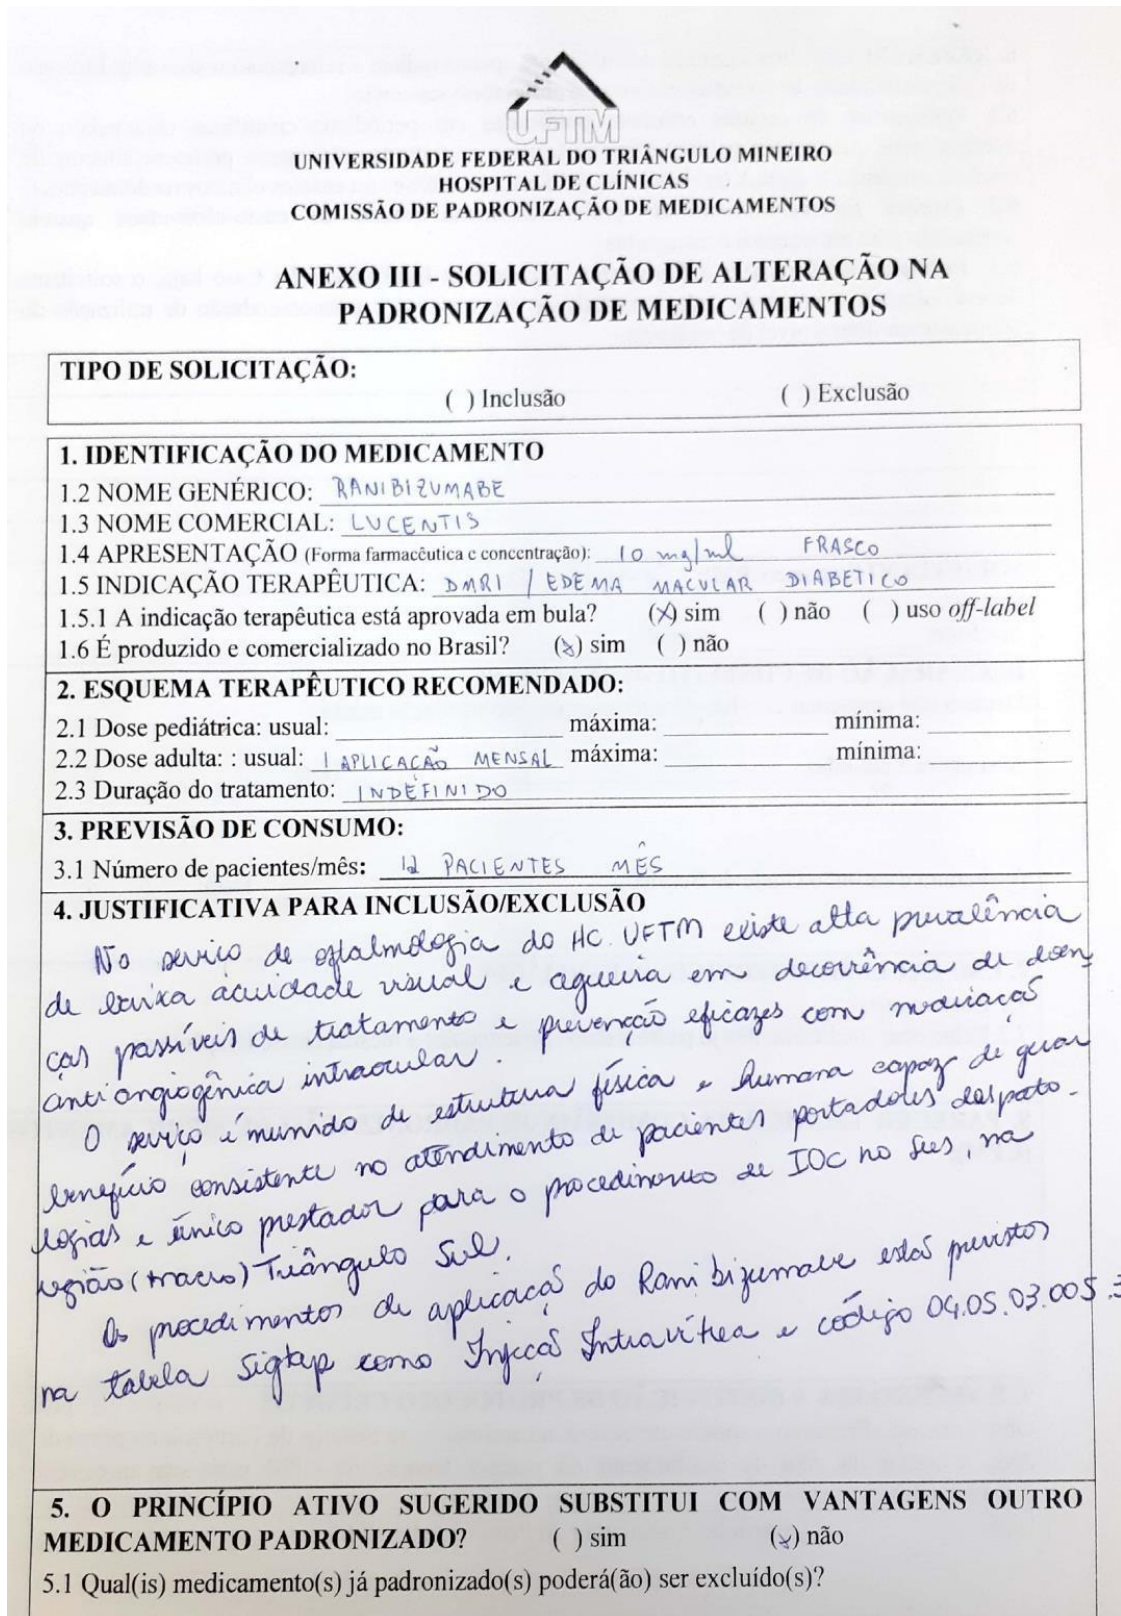 UFTM
UNIVERSIDADE FEDERAL DO TRIÂNGULO MINEIRO
HOSPITAL DE CLÍNICAS
COMISSÃO DE PADRONIZAÇÃO DE MEDICAMENTOS
ANEXO III - SOLICITAÇÃO DE ALTERAÇÃO NA
PADRONIZAÇÃO DE MEDICAMENTOS
TIPO DE SOLICITAÇÃO:
( ) Inclusão ( ) Exclusão
1. IDENTIFICAÇÃO DO MEDICAMENTO
1.2 NOME GENÉRICO: RANIBIZUMABE
1.3 NOME COMERCIAL: LUCENTIS
1.4 APRESENTAÇÃO (Forma farmacêutica e concentração): 10 mg/ml FRASCO
1.5 INDICAÇÃO TERAPÊUTICA: DMRI / EDEMA MACULAR DIABETICO
1.5.1 A indicação terapêutica está aprovada em bula? (X) sim ( ) não ( ) uso off-label
1.6 É produzido e comercializado no Brasil? (x) sim ( ) não
2. ESQUEMA TERAPÊUTICO RECOMENDADO:
2.1 Dose pediátrica: usual: máxima: mínima:
2.2 Dose adulta: : usual: 1 APLICAÇÃO MENSAL máxima: mínima:
2.3 Duração do tratamento: INDEFINIDO
3. PREVISÃO DE CONSUMO:
3.1 Número de pacientes/mês: PACIENTES MÊS
4. JUSTIFICATIVA PARA INCLUSÃO/EXCLUSÃO
No serviço de oftalmologia do HC. UFTM existe alta prevalência
de baixa acuidade visual e cegueira em decorrência de doen
ças passíveis de tratamento e prevenção eficazes com medicação
antiangiogênica intraocular.
O serviço é munido de estrutura física e humana capaz de gerar
benefício consistente no atendimento de pacientes portadores das pato-
logias e único prestador para o procedimento de IOC no Sus, na
região (macro) Triângulo Sul.
Os procedimentos de aplicação do Ranibizumabe estão previstos
na tabela Sigtap como Injeção Intravítrea e código 04.05.03.005.3
5. O PRINCÍPIO ATIVO SUGERIDO SUBSTITUI COM VANTAGENS OUTRO
MEDICAMENTO PADRONIZADO? ( ) sim (x) não
5.1 Qual(is) medicamento(s) já padronizado(s) poderá(ão) ser excluído(s)?